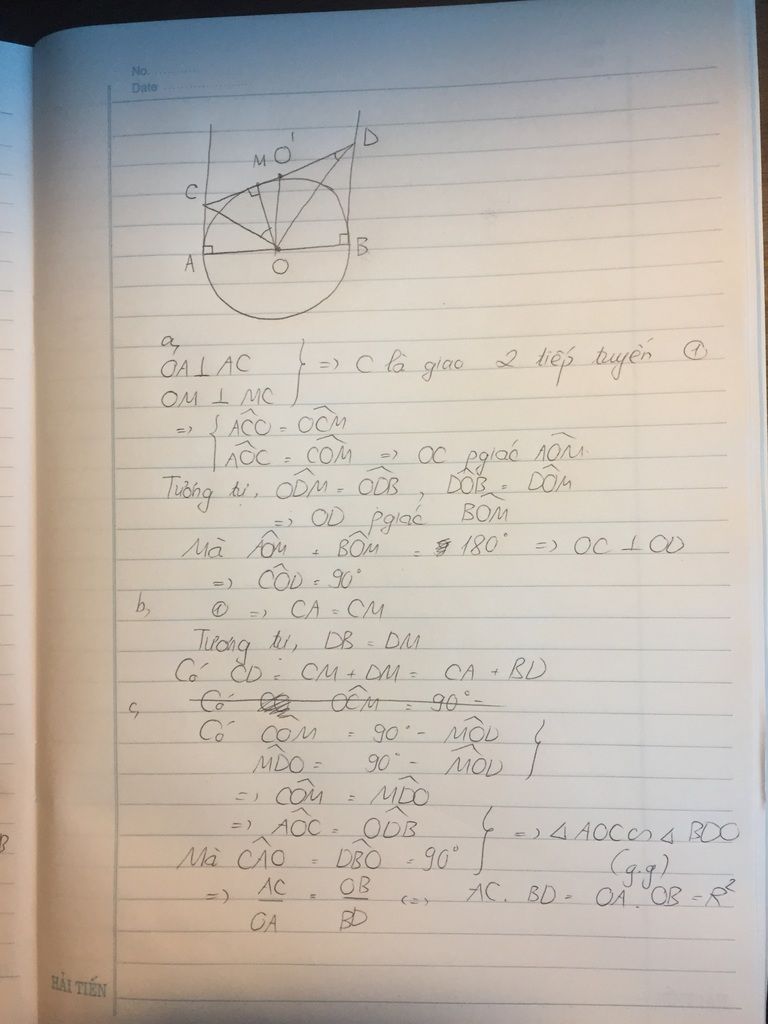 No.
Date
D
M O'
C
A
B
O
a,
OA ⊥ AC
OM ⊥ MC } => C là giao 2 tiếp tuyến ①
=> { AĈO = OĈM
AÔC = CÔM => OC pgiác AÔM.
Tương tự, ODM̂ = ODB̂, DÔB = DÔM
=> OD pgiác BÔM
Mà AÔM + BÔM = 180° => OC ⊥ OD
=> CÔD = 90°
b, ① => CA = CM
Tương tự, DB = DM
Có CD = CM + DM = CA + BD
c, Có OĈM = 90° -
Có CÔM = 90° - MÔD
MD̂O = 90° - MÔD }
=> CÔM = MD̂O
=> AÔC = OD̂B } => Δ AOC ∽ Δ BDO
Mà CÂO = DB̂O = 90° (g.g)
=> AC/OA = OB/BD <=> AC. BD = OA. OB = R²
HẢI TIẾN
B